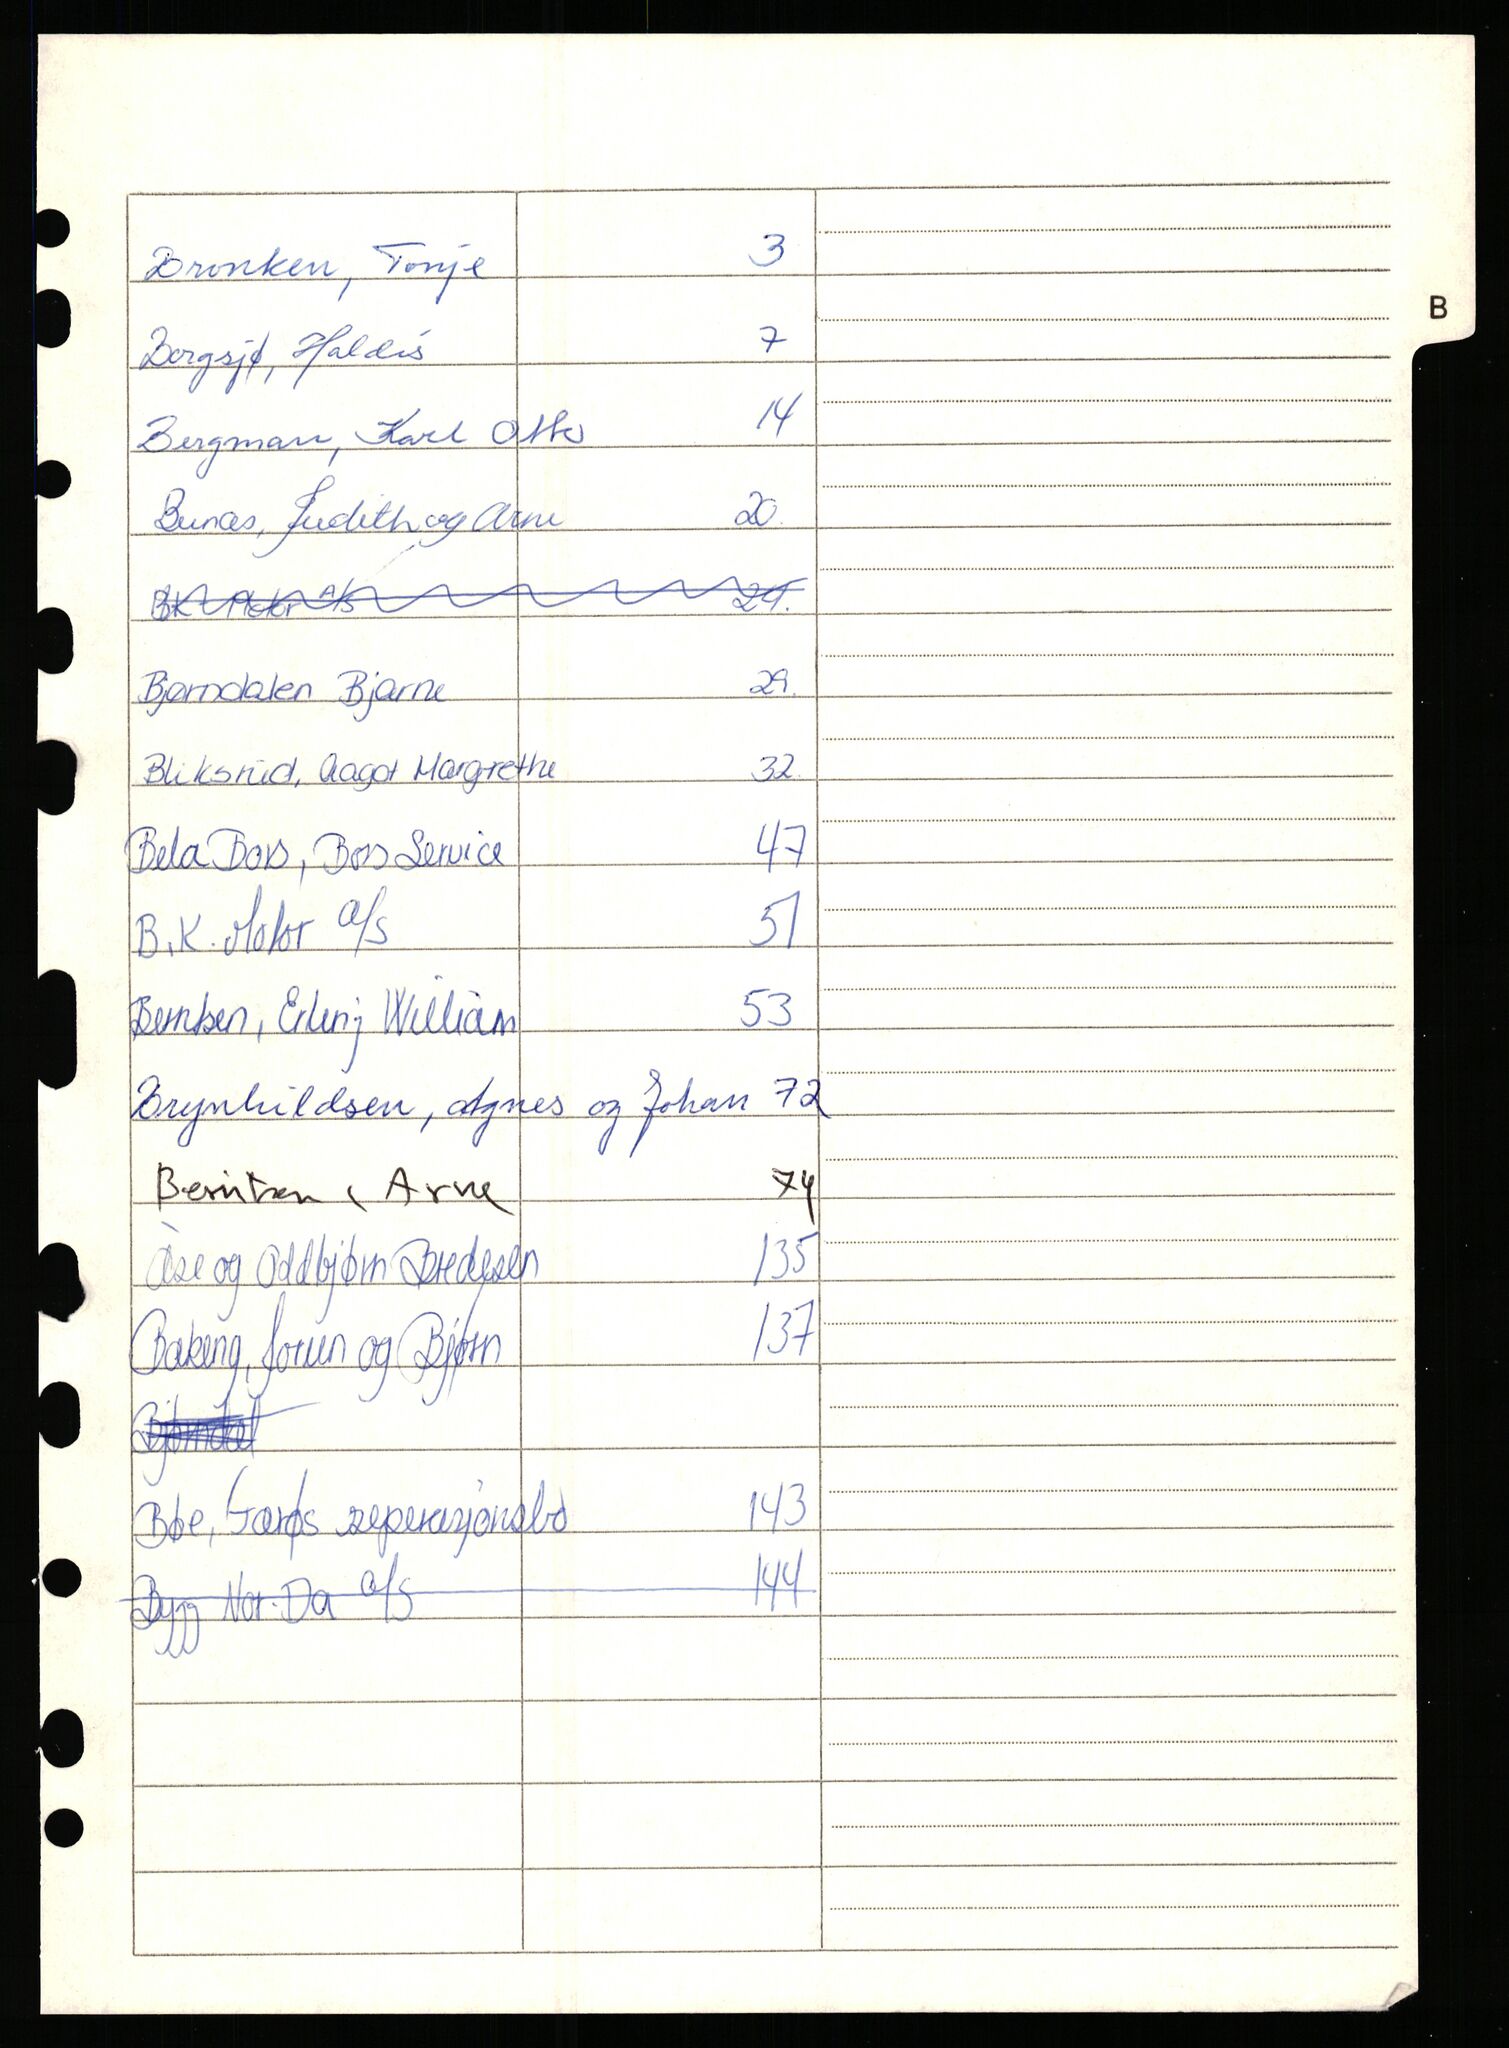 B
Bronken, Tonje 3
Bergsjø, Haldis 7
Bergman, Karl Otto 14
Bunæs, Judith og Arne 20.
BK Motor A/S 24.
Bjørndalen Bjarne 29.
Bliksrud, Aagot Margrethe 32.
Bela Bors, Bors Service 47
B.K. Motor A/S 51
Berntsen, Erling William 53
Brynhildsen, Agnes og Johan 72
Berntsen, Arne 74
Åse og Oddbjørn Bredesen 135
Bakeng, Jorun og Bjørn 137
Bjørndal
Bøe, 143
Bygg Nor-Da A/S 144